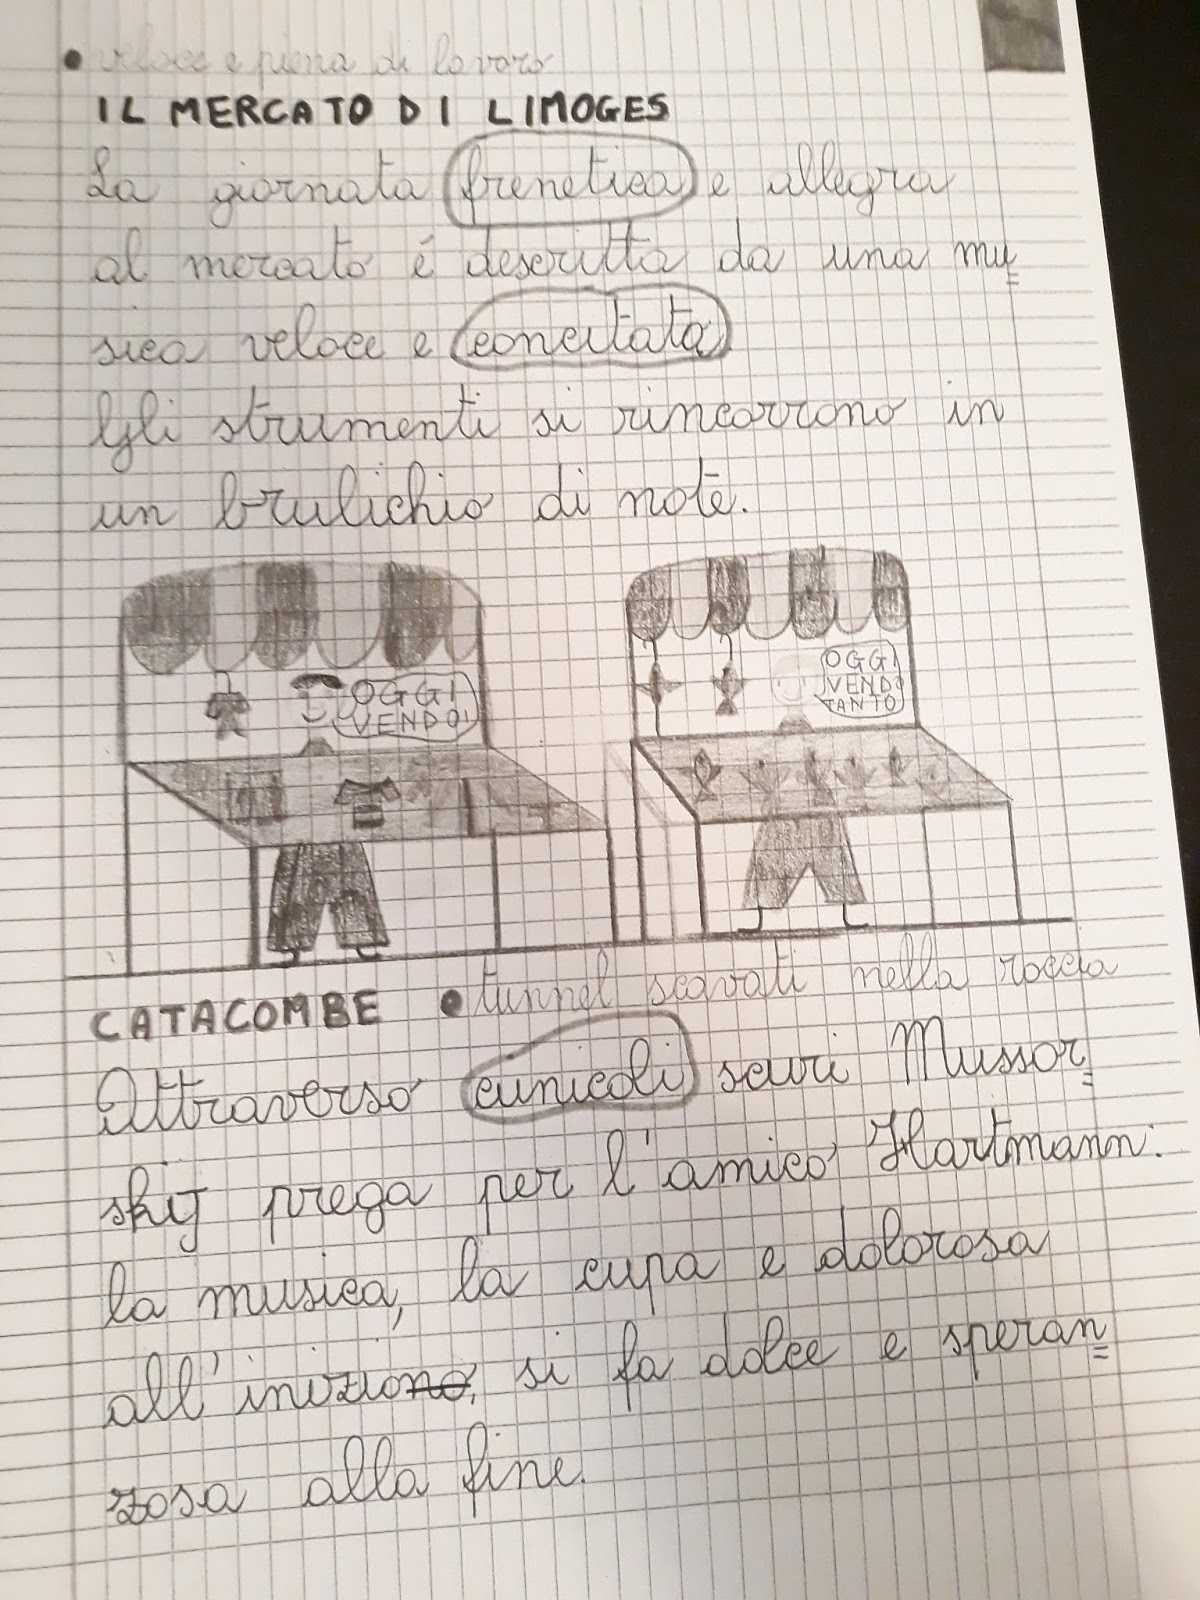 • veloce e piena di lavoro
IL MERCATO DI LIMOGES
La giornata frenetica e allegra
al mercato é descritta da una mu
sica veloce e concitata
Gli strumenti si rincorrono in
un brulichio di note.
OGGI
VENDO!
OGGI
VENDO
TANTO
CATACOMBE • tunnel scavati nella roccia
Attraverso cunicoli scuri Mussor
skij prega per l'amico Hartmann:
la musica, la cupa e dolorosa
all'iniziono, si fa dolce e speran
zosa alla fine.